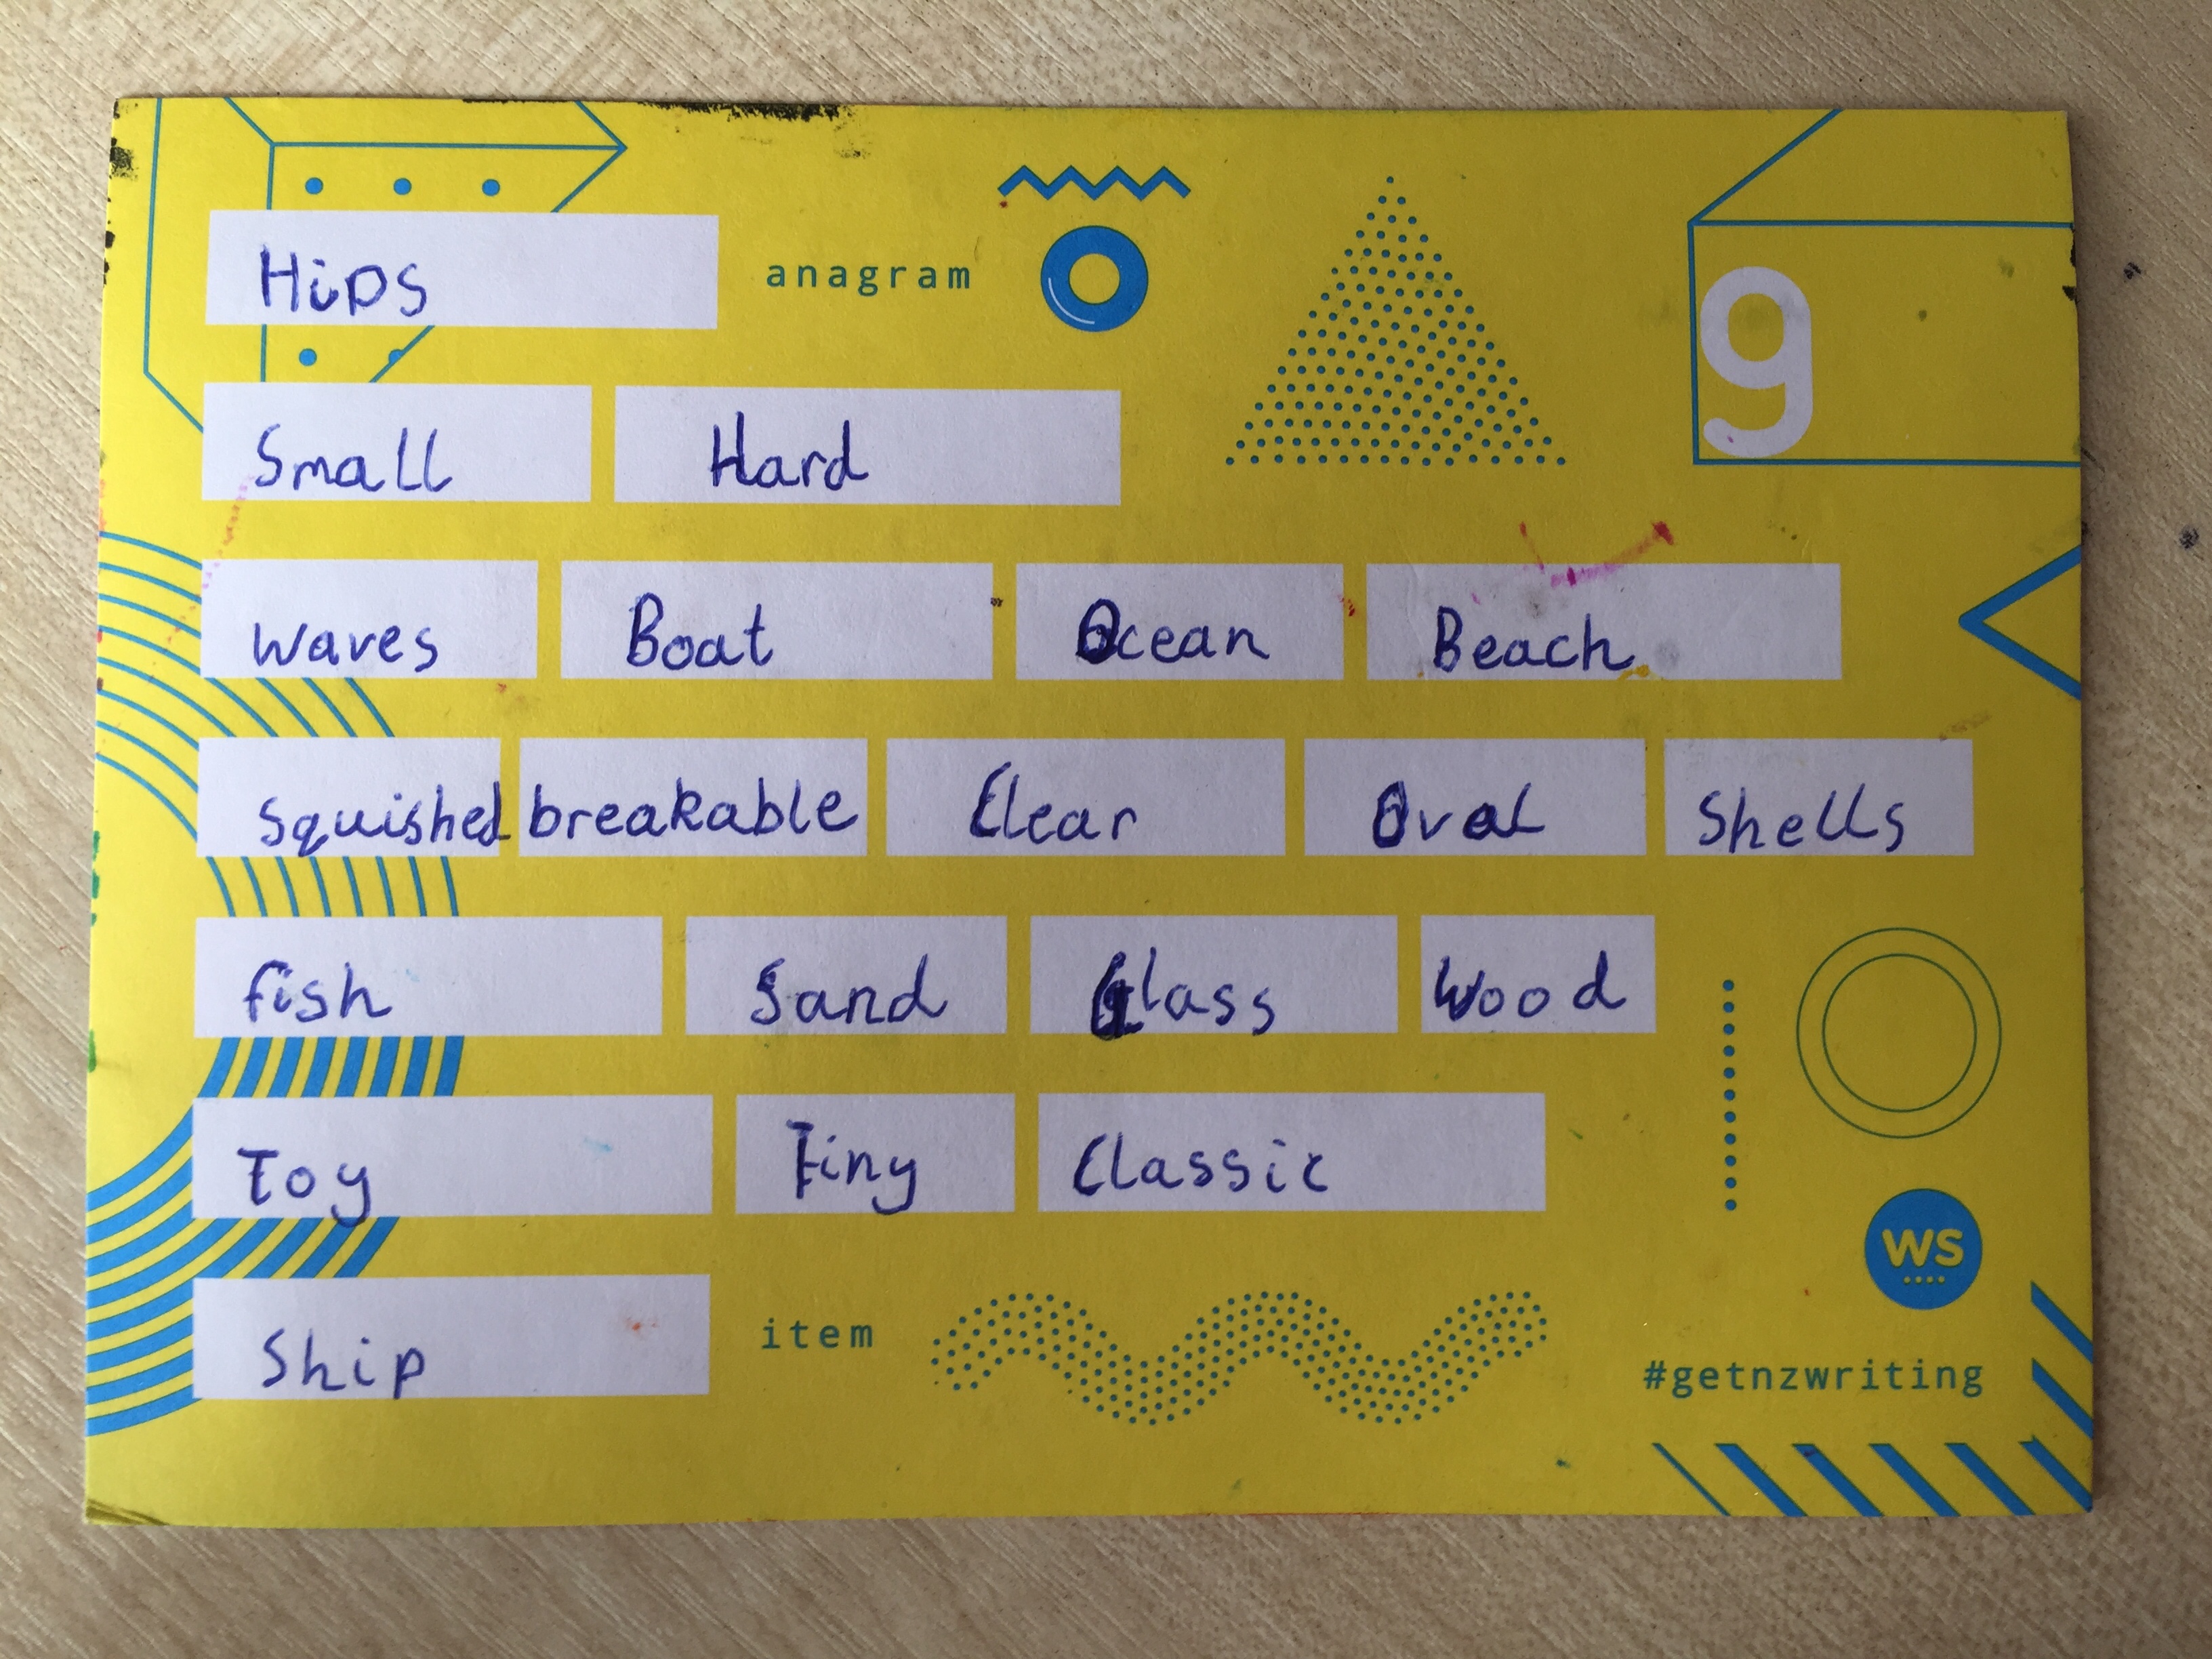 Hips anagram 9
Small Hard
waves Boat Ocean Beach
Squished breakable Clear Oval Shells
fish Sand Glass Wood
Toy Tiny Classic
WS
Ship item
#getnzwriting